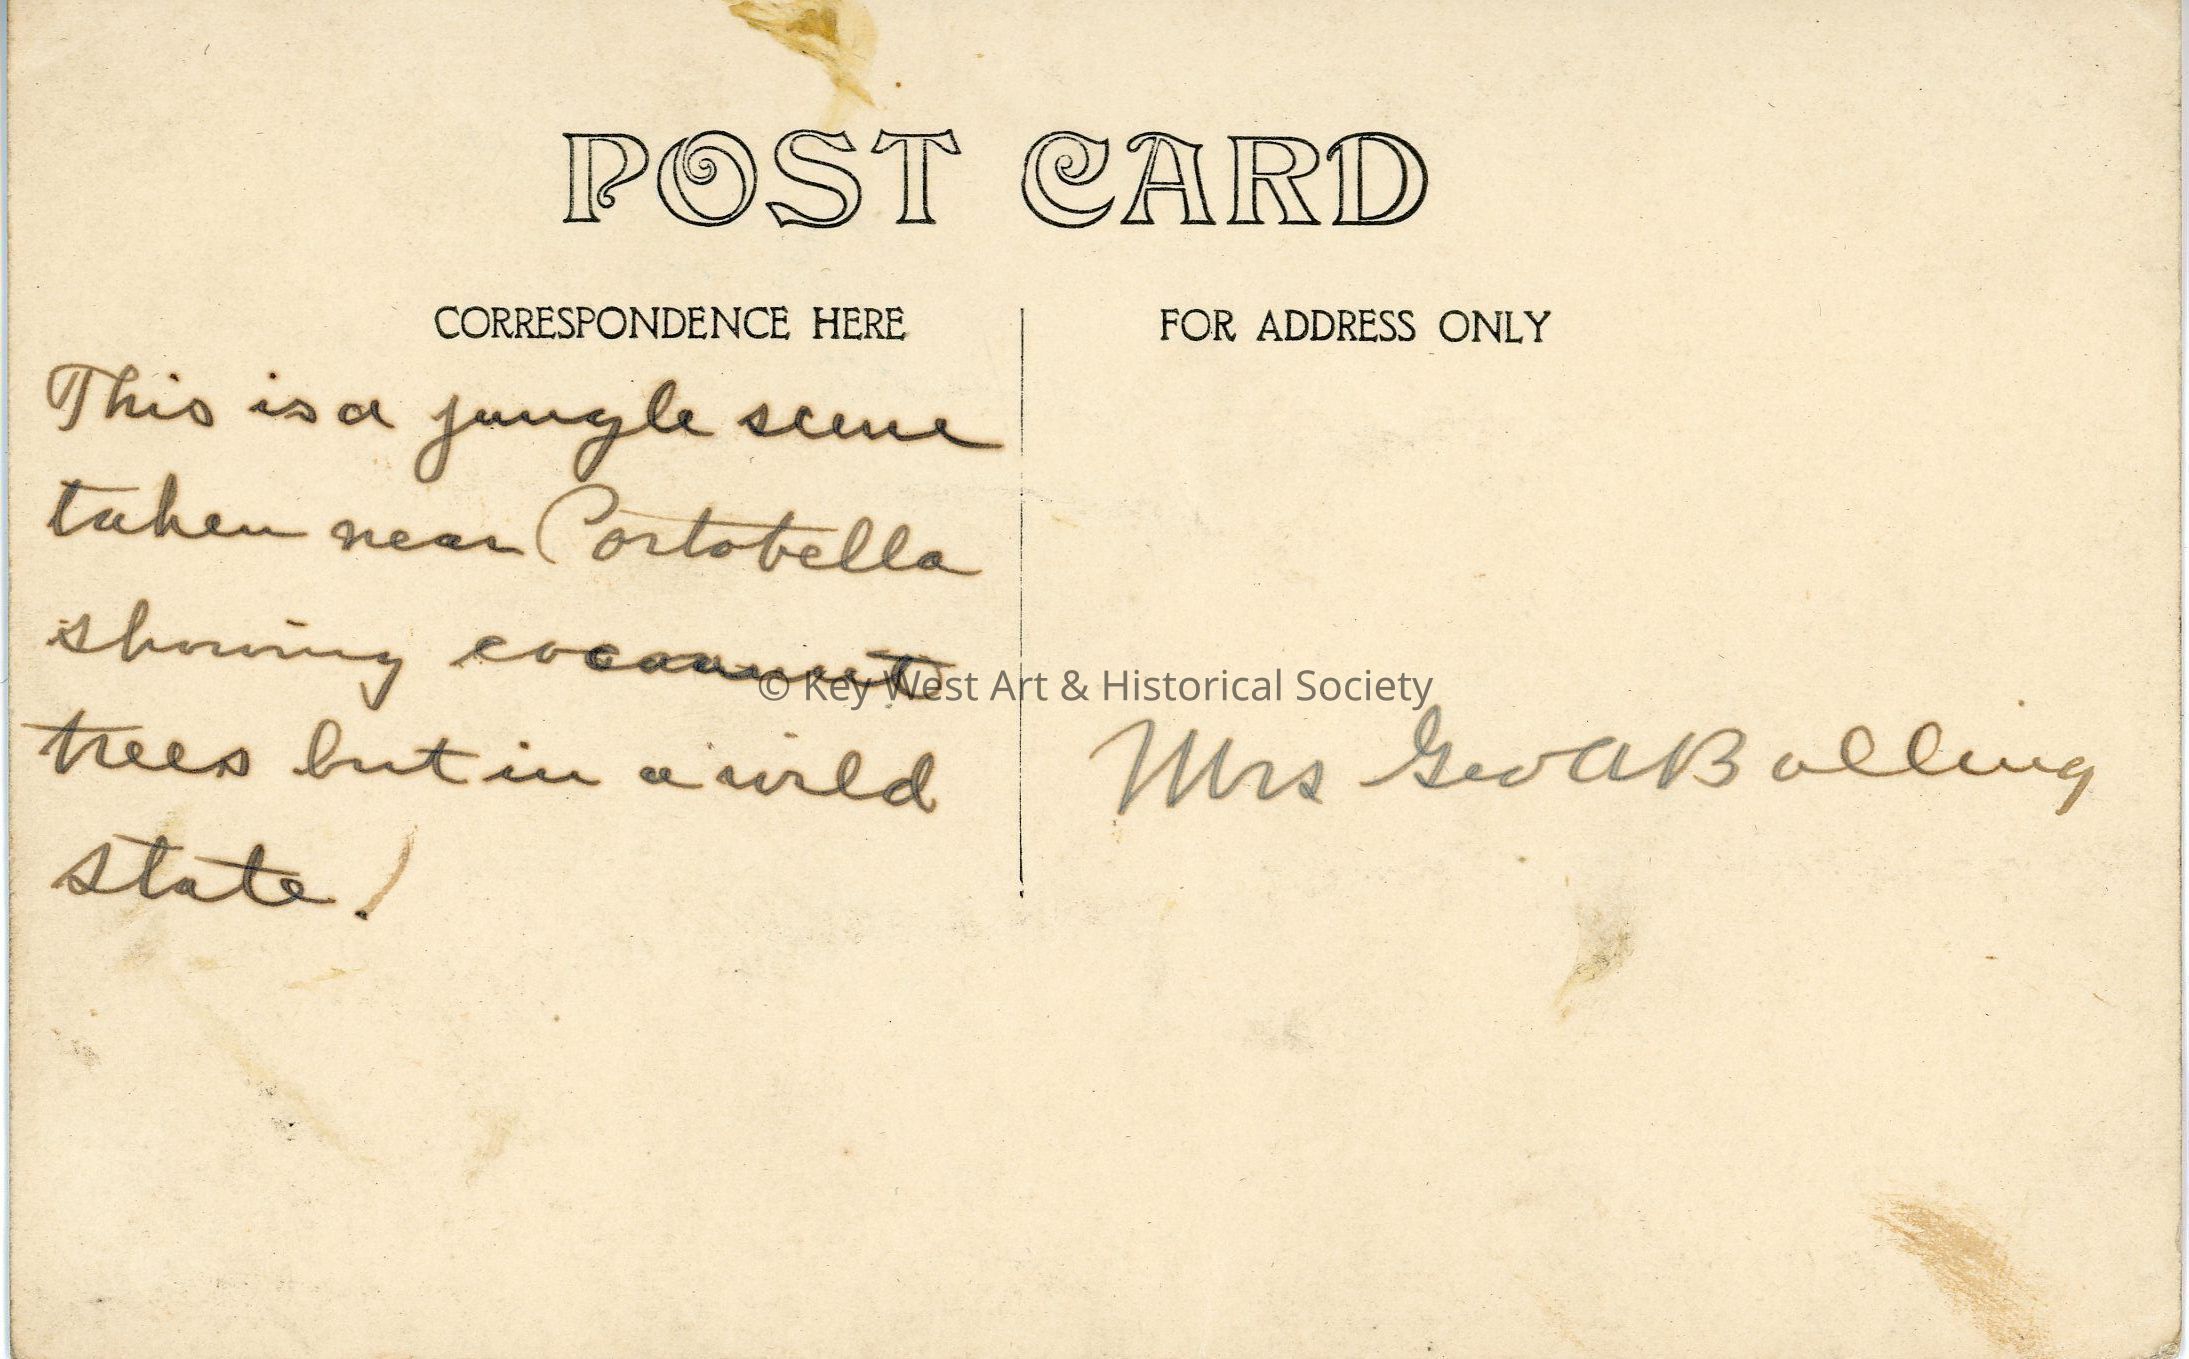 POST CARD
CORRESPONDENCE HERE
FOR ADDRESS ONLY
This is a jungle scene
taken near Portobella
showing cocoanut
trees but in a wild
state!
© Key West Art & Historical Society
Mrs Geo A Bolling